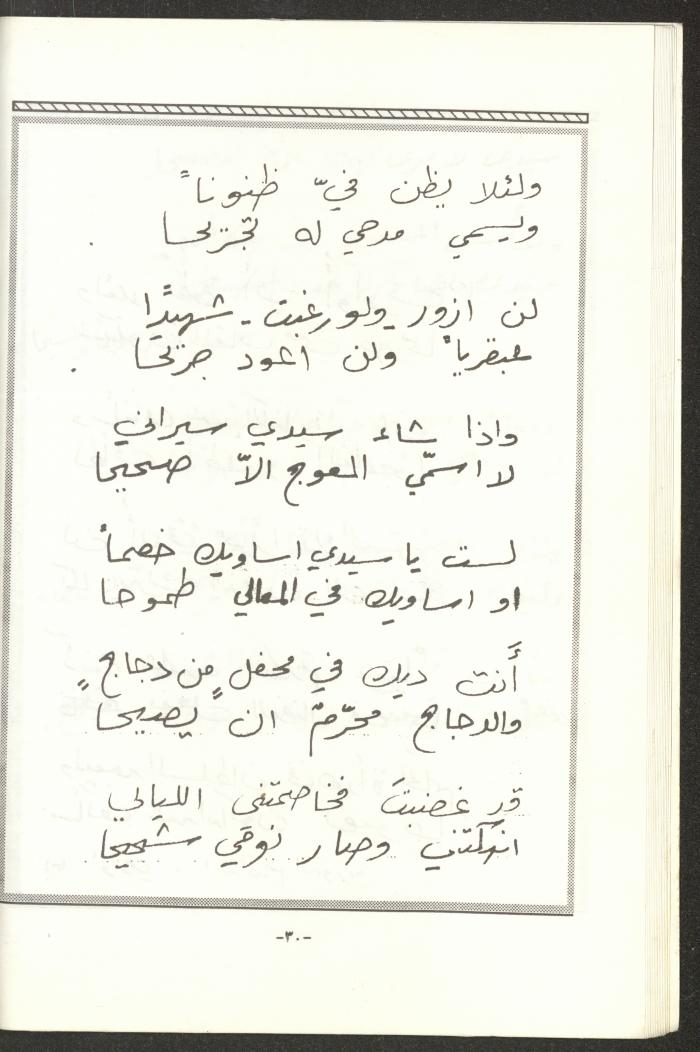 ولئلا يظن فيّ ظنوناً
ويسمي مدحي له تجريحا .
لن ازور - ولو رغبت - شهيدًا
عبقرياً ولن اعود جريحا .
واذا شاء سيدي سيراني
لا اسمّي المعوج الاّ صحيحا
لست يا سيدي اساويك خصماً
او اساويك في المعالي طموحا
أَنت ديك في محفلٍ من دجاجٍ
والدجاج محرّمٌ ان يصيحا
قد غضبتَ فخاصمتني الليالي
وصار نومي شحيحا
-٣٠-